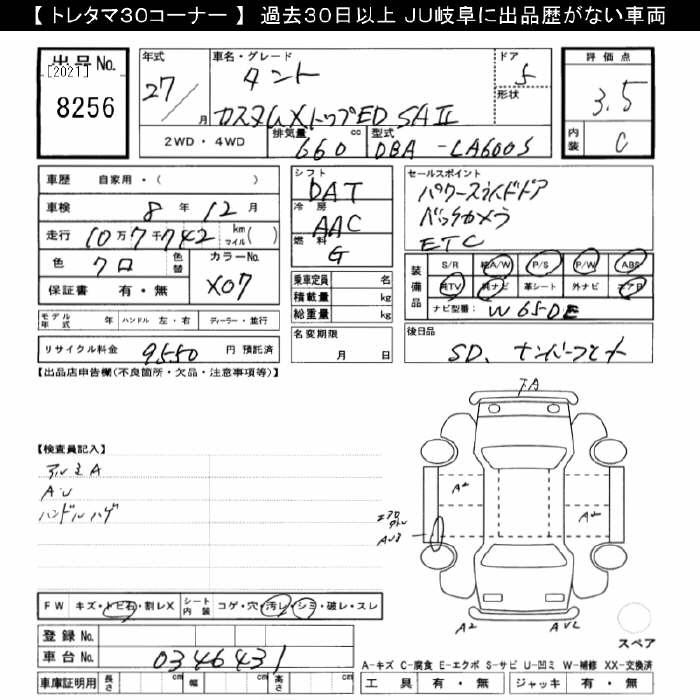 【 トレタマ30コーナー 】 過去30日以上 JU岐阜に出品歴がない車両
出品No.
[2021]
8256
年式
27/ 月
車名・グレード
タント
カスタムXトップED SAⅡ
ドア
5
形状
評価点
3.5
内装
C
2WD・4WD
排気量 660 cc
型式 DBA -LA600S
車歴 自家用・( )
車検 8 年 12 月
走行 10万7千742 km マイル( )
色 クロ 色替
カラーNo.
X07
保証書 有・無
モデル年式 年 ハンドル 左・右 ディーラー・並行
リサイクル料金 9550 円 預託済
シフト
DAT
冷房
AAC
燃料
G
乗車定員 名
積載量 kg
総重量 kg
名変期限
月 日
セールスポイント
パワースライドドア
バックカメラ
ETC
装備品
S/R 純A/W P/S P/W ABS
純TV 純ナビ 革シート 外ナビ エアB
ナビ型番: W65DE
後日品
SD、ナンバーフレト
【出品店申告欄(不良箇所・欠品・注意事項等)】
【検査員記入】
アルミA
AU
ハンドルハゲ
FA
A2
A2
エアロ
AU3
A2
FW キズ・トビ石・割レX シート内装 コゲ・穴・汚レ・シミ・破レ・スレ
登録No.
車台No. 0346431
車庫証明用 長さ cm 幅 cm 高さ cm
スペア
A-キズ C-腐食 E-エクボ S-サビ U-凹ミ W-補修 XX-交換済
工具 有・無 ジャッキ 有・無